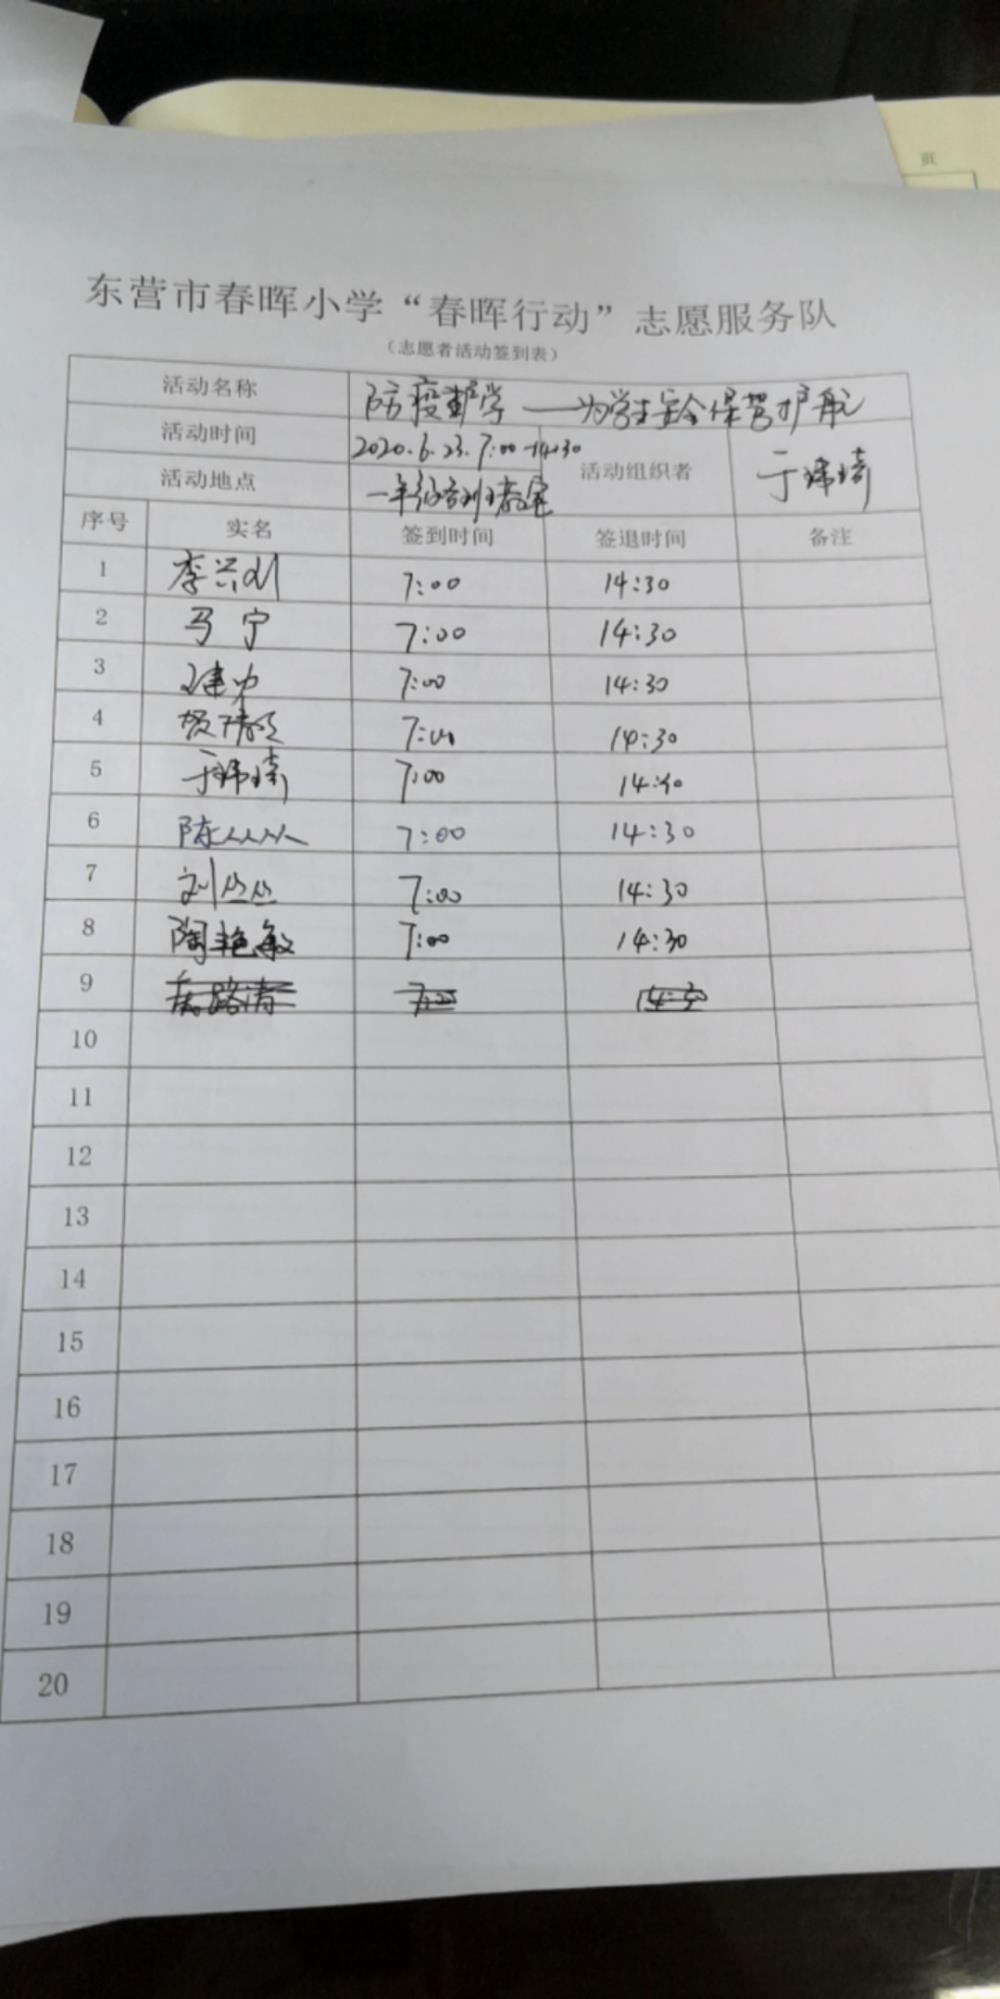 页
东营市春晖小学“春晖行动”志愿服务队
（志愿者活动签到表）
活动名称 防疫护学——为学生安全保驾护航
活动时间 2020.6.23.7:00-14:30
活动地点 一年级 班教室 活动组织者 于琳琦
序号 实名 签到时间 签退时间 备注
1 李兴 7:00 14:30
2 马宁 7:00 14:30
3 7:00 14:30
4 7:00 14:30
5 于琳琦 7:00 14:30
6 陈从从 7:00 14:30
7 刘丛丛 7:00 14:30
8 陶艳敏 7:00 14:30
9
10
11
12
13
14
15
16
17
18
19
20